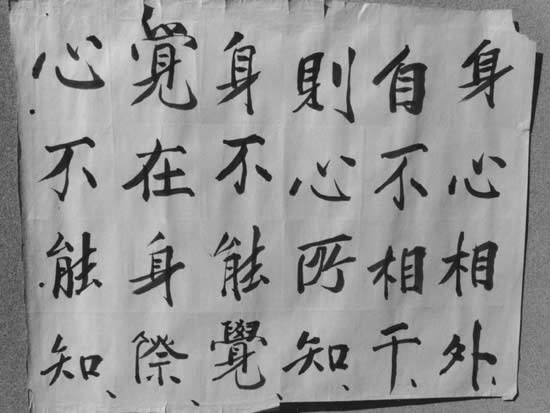 身心相外、
自不相干、
則心所知、
身不能覺、
覺在身際、
心不能知、